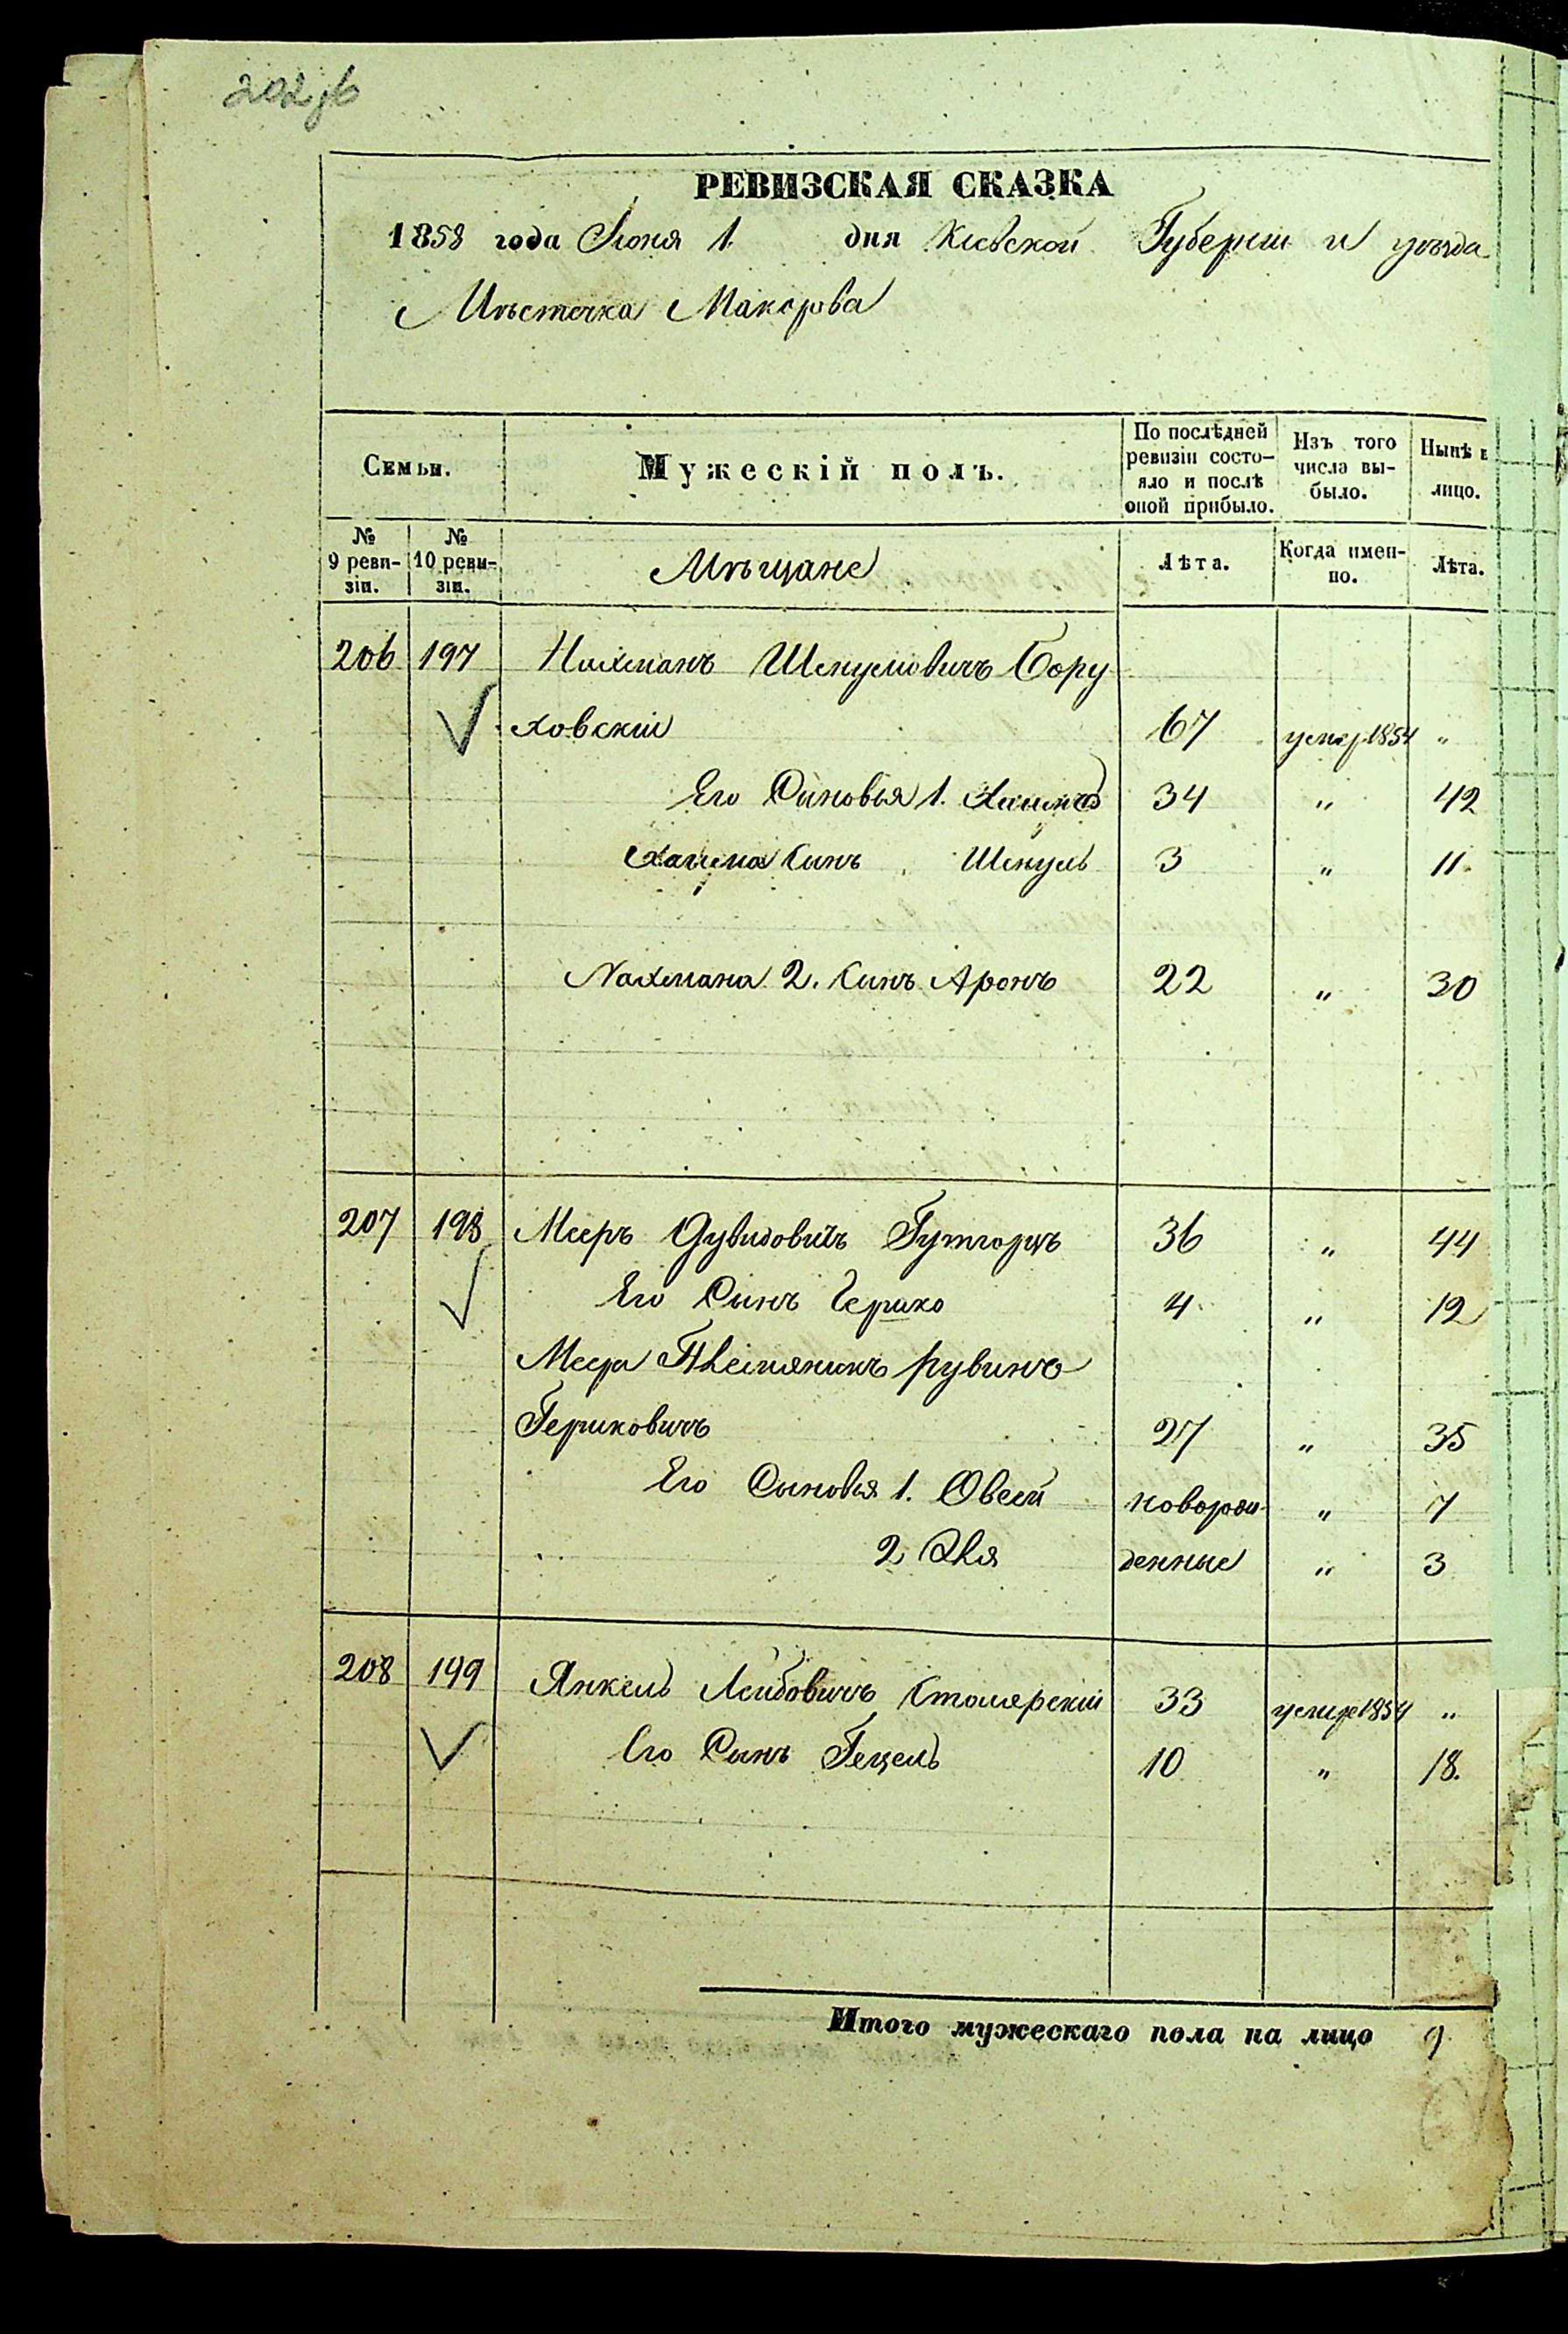 202 об
РЕВИЗСКАЯ СКАЗКА
1858 года Іюня 1. дня Кіевской Губерніи и уѣзда
Мѣстечка Макарова
Семьи. Мужескій полъ. По послѣдней ревизіи состо-яло и послѣ оной прибыло. Изъ того числа вы-было. Нынѣ в лицо.
№ 9 реви-зіи. № 10 реви-зіи. Мѣщане Лѣта. Когда имен-но. Лѣта.
206 197 Нахманъ Шмулиовичъ Бору
ховскій 67 умер. 1854 "
Его Сыновья 1. Хаимъ 34 " 42
Хаима Сынъ Шмуль 3 " 11.
Нахмана 2. Сынъ Аронъ 22 " 30
207 198 Мееръ Дувидовичъ Гутгорцъ 36 " 44
Его Сынъ Гершко 4 " 12
Меера Племяникъ Рувинъ
Гершковичъ 27 " 35
Его Сыновья 1. Овсей новорож- " 7
2. Эля денные " 3
208 199 Янкель Лейбовичъ Столярскій 33 умер 1854 "
Его Сынъ Гецель 10 " 18.
Итого мужескаго пола на лицо 9